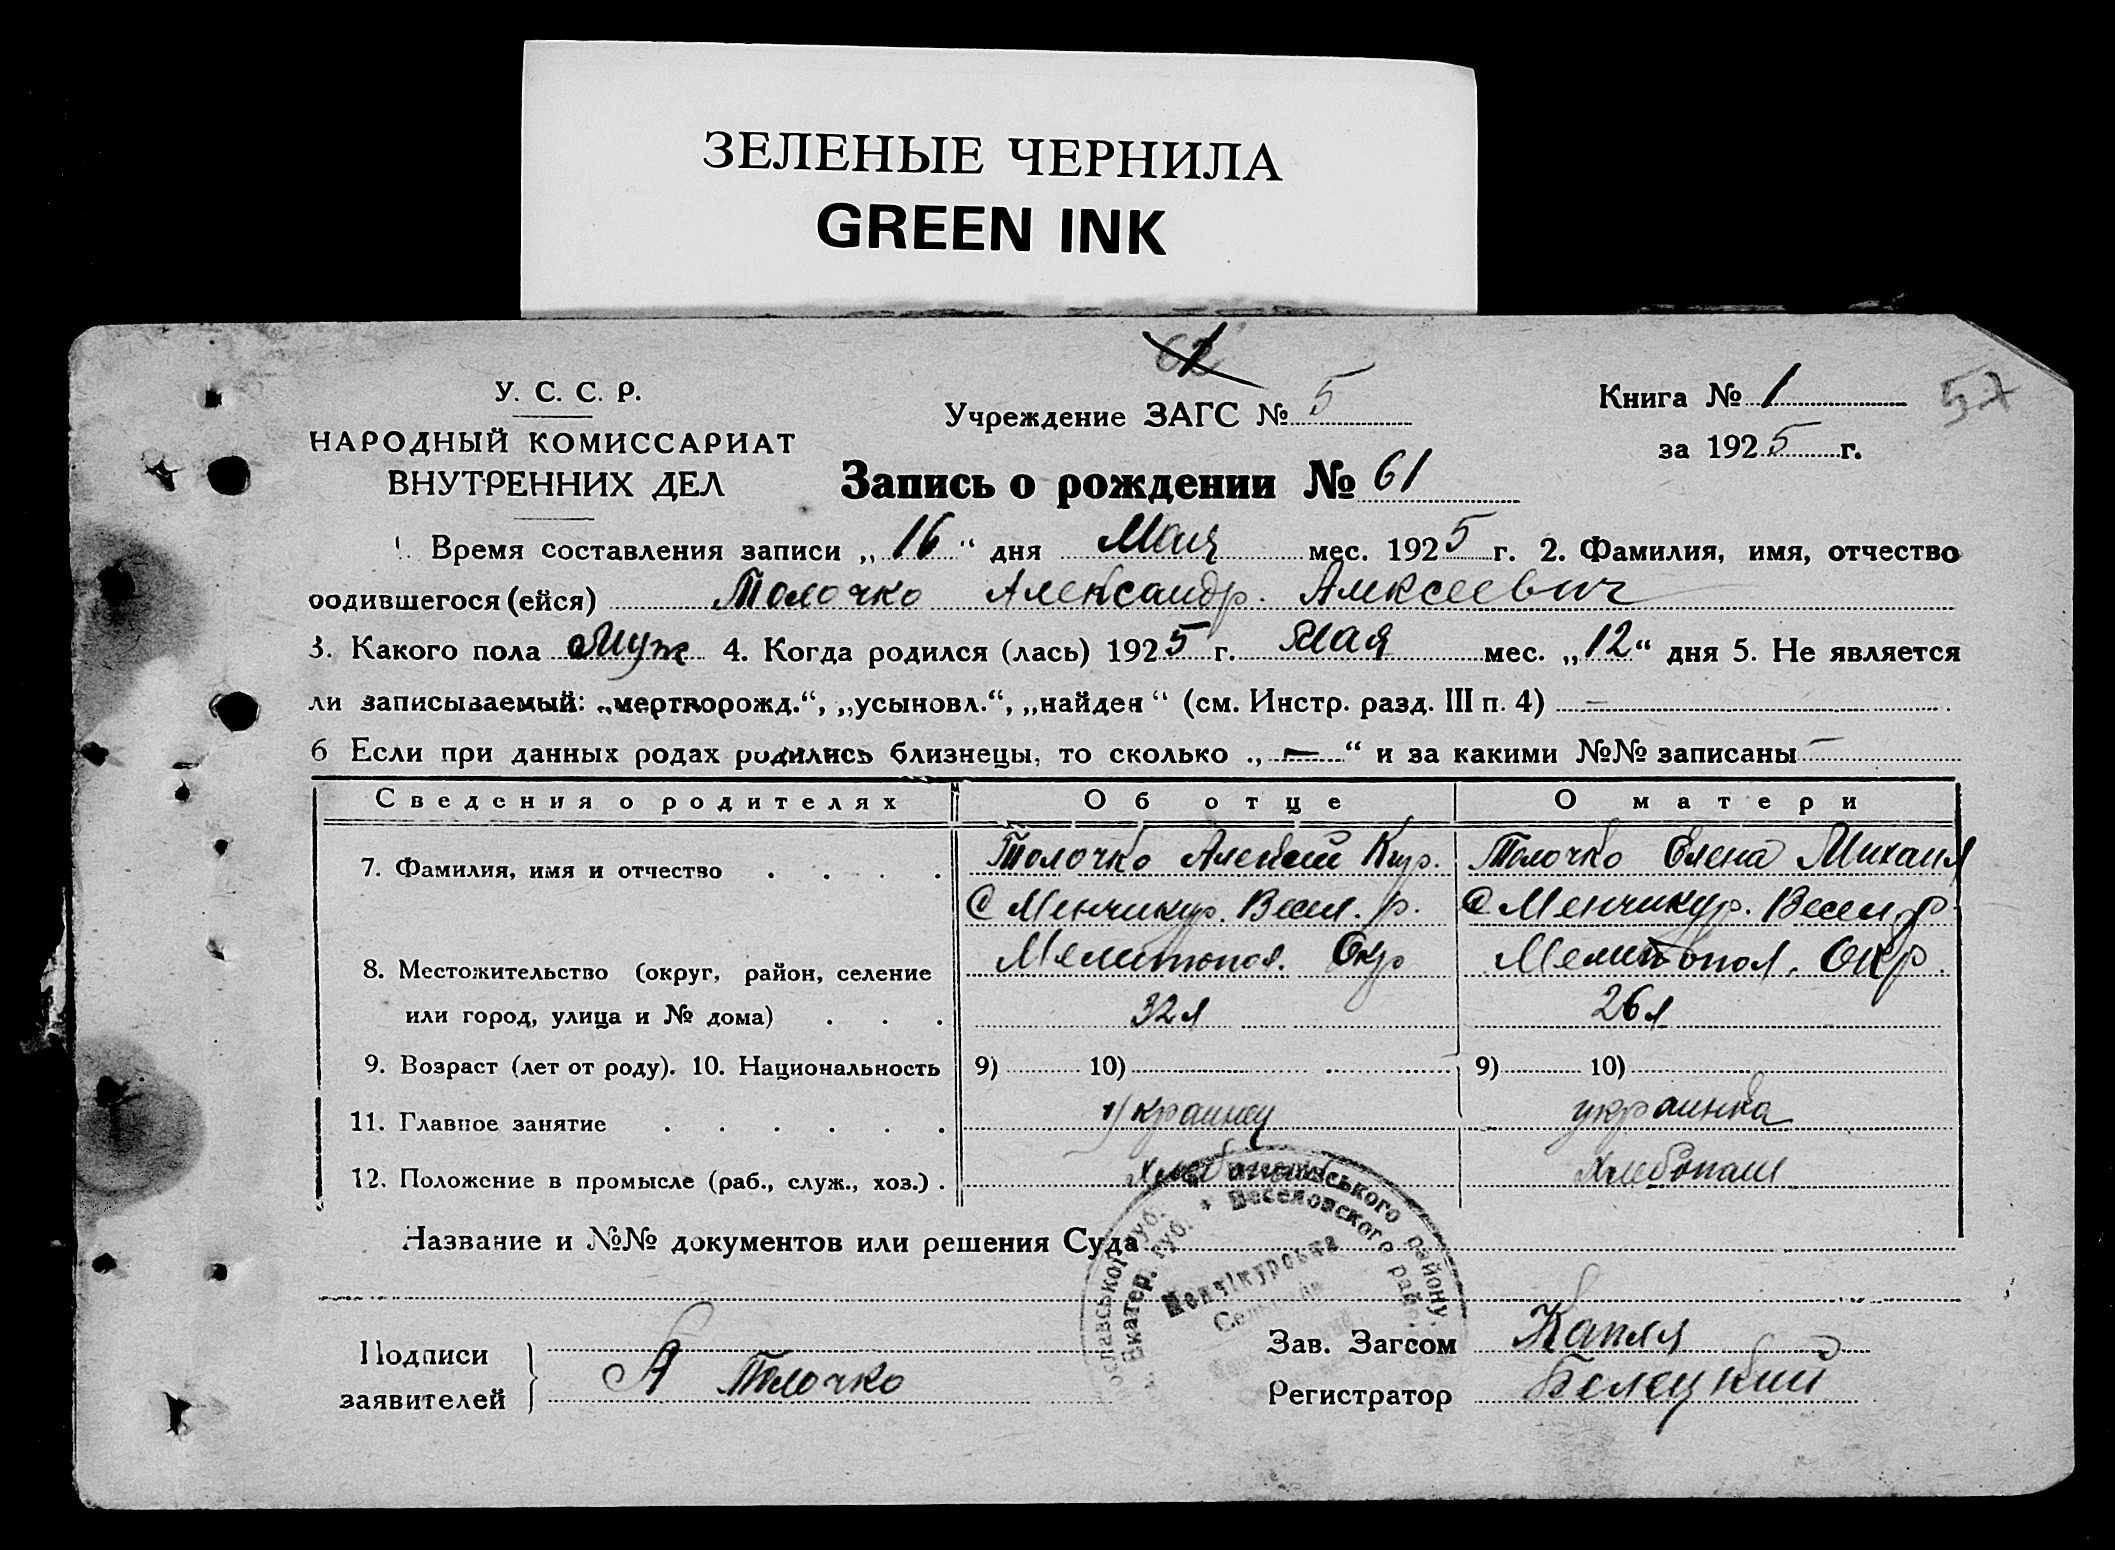 ЗЕЛЕНЫЕ ЧЕРНИЛА
GREEN INK
62
У. С. С. Р.
НАРОДНЫЙ КОМИССАРИАТ
ВНУТРЕННИХ ДЕЛ
Учреждение ЗАГС № 5
Книга № 1
57
за 1925 г.
Запись о рождении № 61
1. Время составления записи „16“ дня Мая мес. 1925 г. 2. Фамилия, имя, отчество
родившегося (ейся) Толочко Александр. Алексеевич
3. Какого пола Муж 4. Когда родился (лась) 1925 г. Мая мес. „12“ дня 5. Не является
ли записываемый: „мертворожд.“, „усыновл.“, „найден“ (см. Инстр. разд. III п. 4) —
6 Если при данных родах родились близнецы, то сколько „—“ и за какими №№ записаны —
Сведения о родителях Об отце О матери
7. Фамилия, имя и отчество Толочко Алексей Кир. Толочко Елена Михаил
С Менчикур. Весел. р. С Менчикур. Весел. р.
8. Местожительство (округ, район, селение Мелитопол. Окр Мелитопол. Окр.
или город, улица и № дома) 32 л 26 л
9. Возраст (лет от роду). 10. Национальность 9) 10) 9) 10)
11. Главное занятие украинец украинка
12. Положение в промысле (раб., служ., хоз.) Хлебопаш
Название и №№ документов или решения Суда
Екатер. губ. * Веселовского район
району
Менчікурська
Подписи
заявителей
А Толочко
Зав. Загсом Капля
Регистратор Белецкий